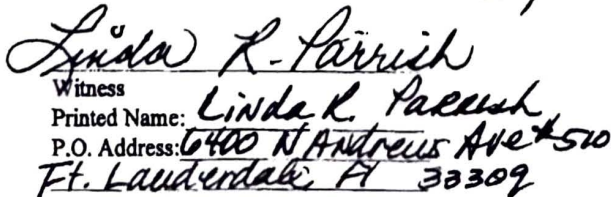 Linda R. Parrish
Witness
Printed Name: Linda R. Parrish
P.O. Address: 6400 N Andrews Ave #510
Ft. Lauderdale, Fl 33309